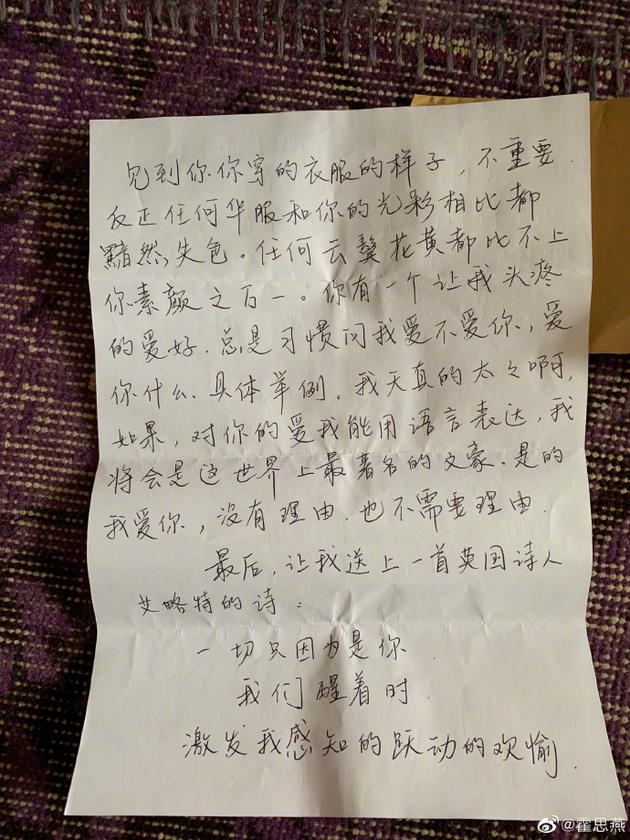 见到你你穿的衣服的样子，不重要.
反正任何华服和你的光彩相比都
黯然失色。任何云鬓花黄都比不上
你素颜之万一。你有一个让我头疼
的爱好.总是习惯问我爱不爱你，爱
你什么.具体举例.我天真的太太啊，
如果，对你的爱我能用语言表达，我
将会是这世界上最著名的文豪.是的
我爱你，没有理由.也不需要理由.
最后，让我送上一首英国诗人
艾略特的诗：
一切只因为是你
我们醒着时.
激发我感知的跃动的欢愉.
@霍思燕